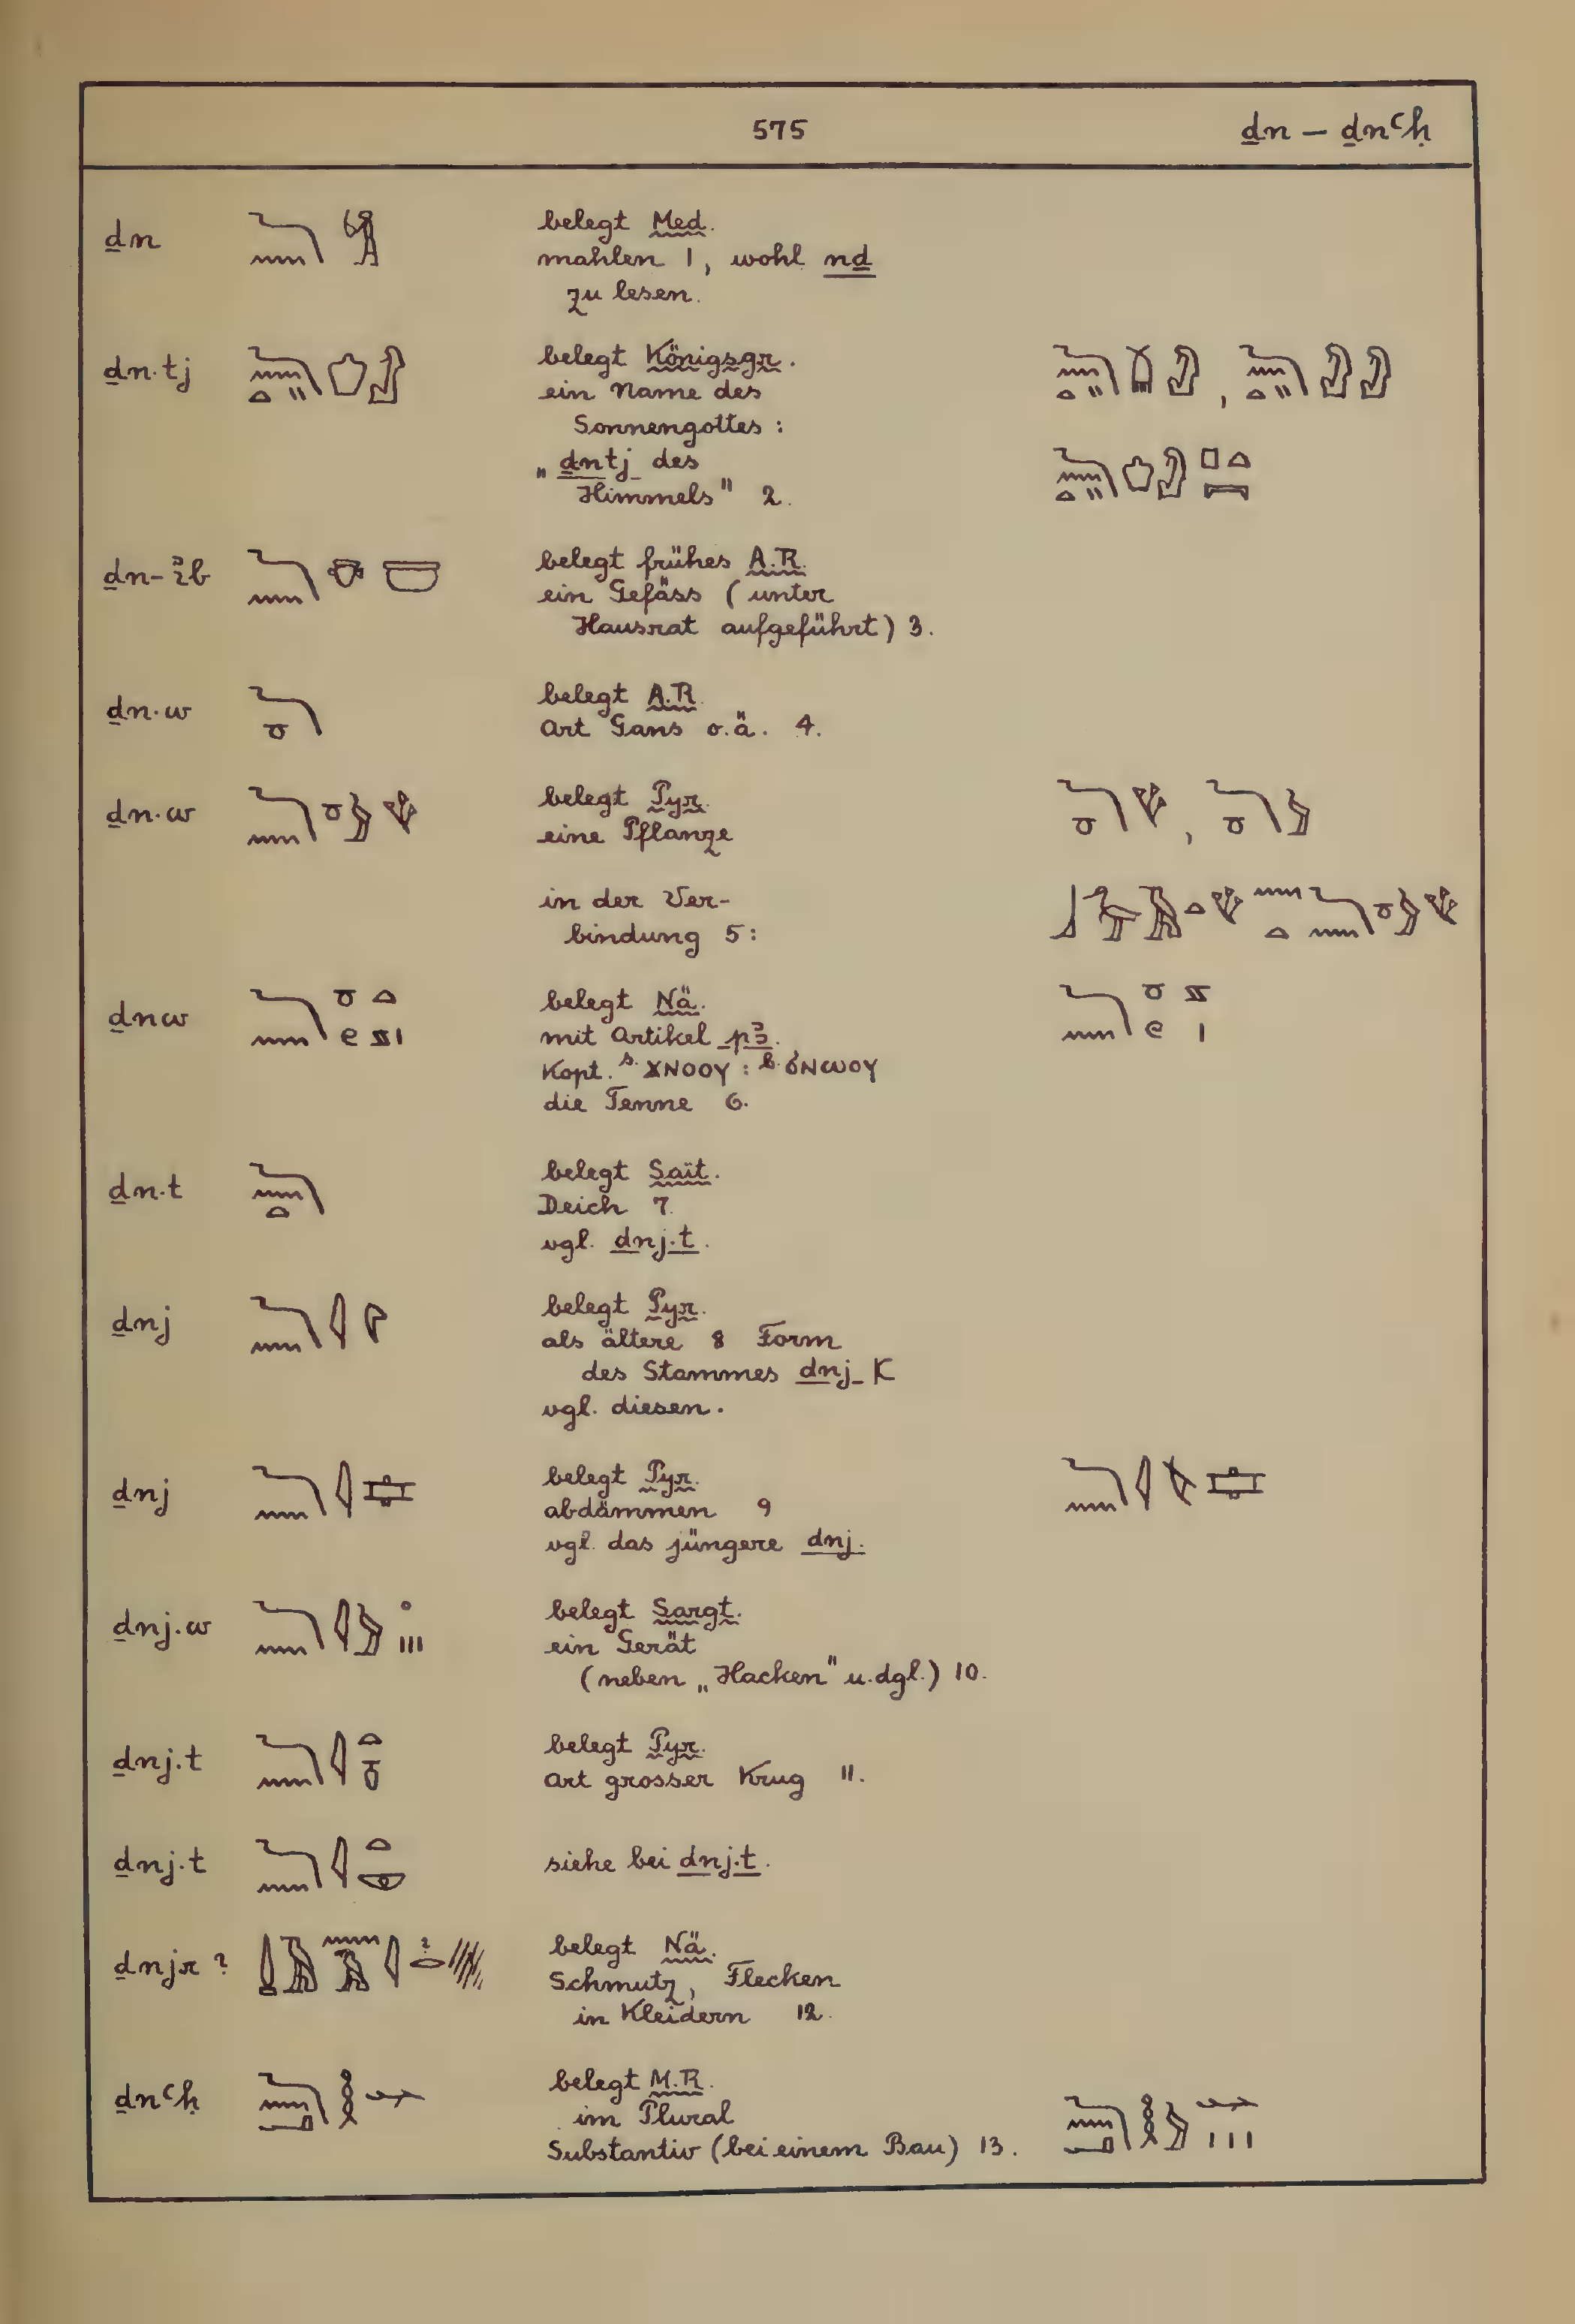 575
ḏn — ḏnꜥḥ
ḏn
belegt Med.
mahlen 1, wohl nḏ
zu lesen.
ḏn·tj
belegt Königsgr.
ein Name des
Sonnengottes:
„ḏntj des
Himmels" 2.
ḏn-ꞽb
belegt frühes A.R.
ein Gefäss (unter
Hausrat aufgeführt) 3.
ḏn·w
belegt A.R.
Art Gans o.ä. 4.
ḏn·w
belegt Pyr.
eine Pflanze
in der Ver-
bindung 5:
ḏnw
belegt Nä.
mit Artikel pꜣ.
Kopt. s. ϫⲛⲟⲟⲩ : b. ϭⲛⲱⲟⲩ
die Tenne 6.
ḏn·t
belegt Saït.
Deich 7.
vgl. dnj·t.
ḏnj
belegt Pyr.
als ältere 8 Form
des Stammes dnj K
vgl. diesen.
ḏnj
belegt Pyr.
abdämmen 9
vgl. das jüngere dnj.
ḏnj·w
belegt Sargt.
ein Gerät
(neben „Hacken" u.dgl.) 10.
ḏnj·t
belegt Pyr.
Art grosser Krug 11.
ḏnj·t
siehe bei dnj·t.
ḏnjr ?
belegt Nä.
Schmutz, Flecken
in Kleidern 12.
ḏnꜥḥ
belegt M.R.
im Plural
Substantiv (bei einem Bau) 13.